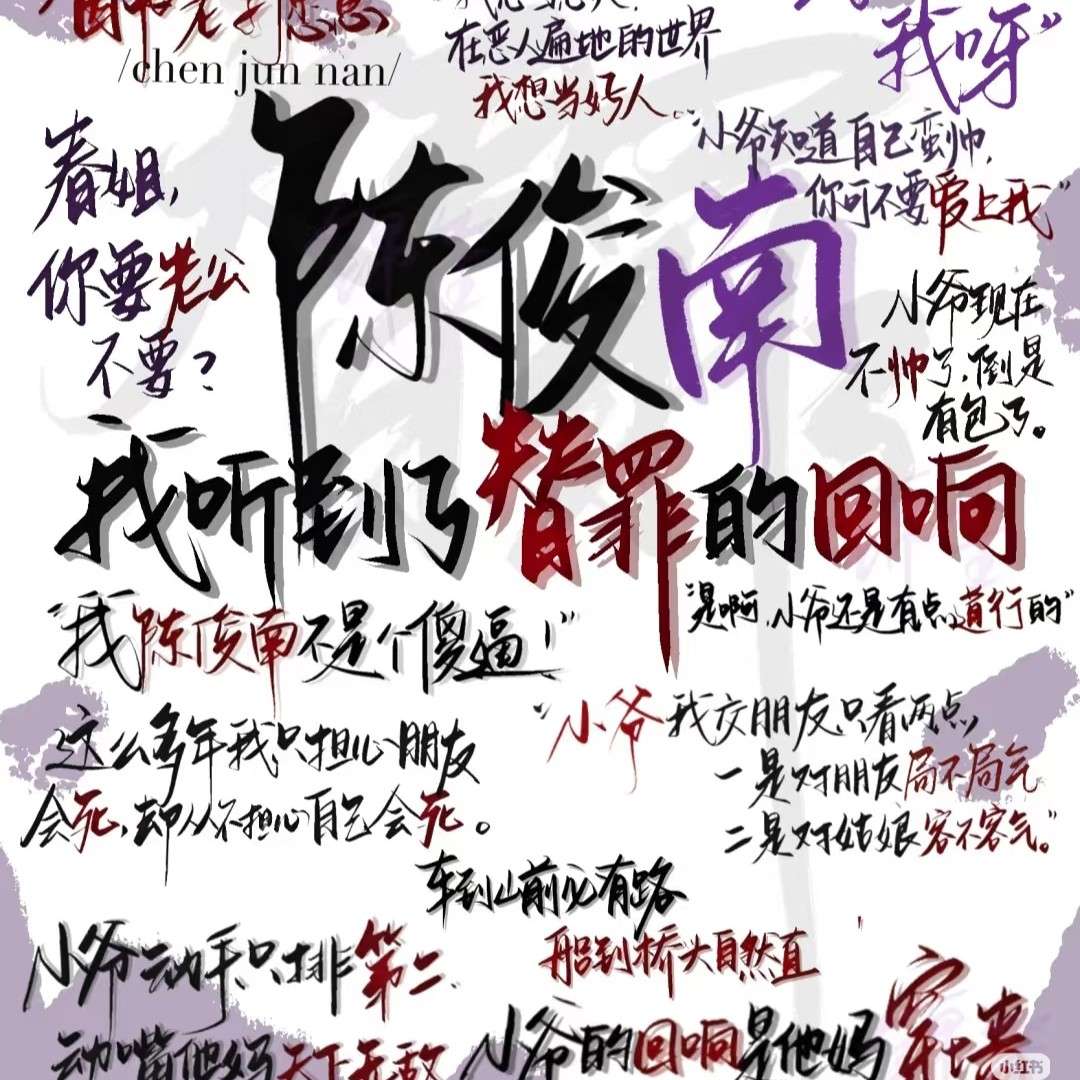 /chen jun nan/
在恶人遍地的世界
我想当好人。
我呀”
春姐,
你要老公
不要?
陈俊南
“小爷知道自己蛮帅,
你可不要爱上我”
小爷现在
不帅了,倒是
有包了。
我听到了替罪的回响
“我陈俊南不是个傻逼!”
“是啊,小爷还是有点道行的”
这么多年我只担心朋友
会死,却从不担心自己会死。
“小爷我交朋友只看两点,
一是对朋友局不局气
二是对姑娘客不客气。”
车到山前必有路
船到桥头自然直
小爷动手只排第二,
动嘴他妈天下无敌
小爷的回响是他妈
小红书